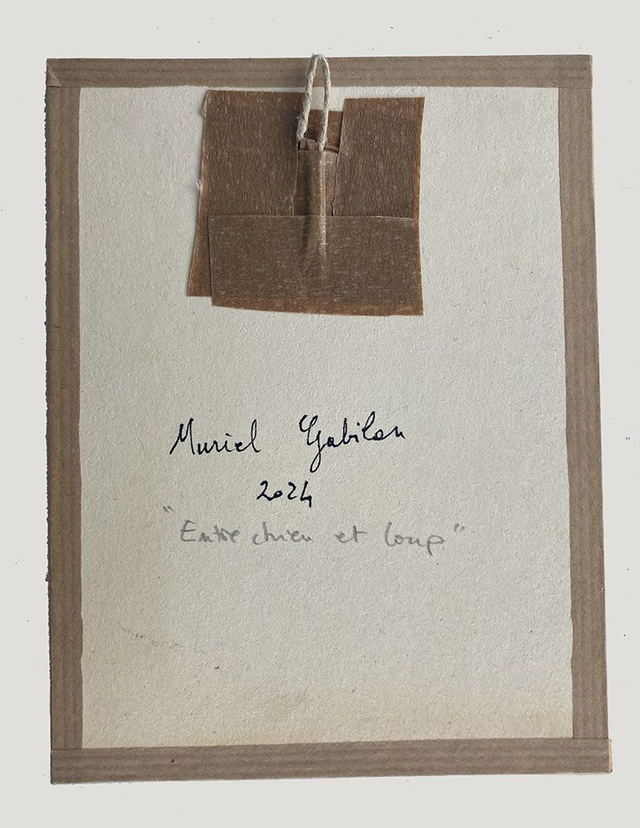 Muriel Gabilan
2024
"Entre chien et loup"